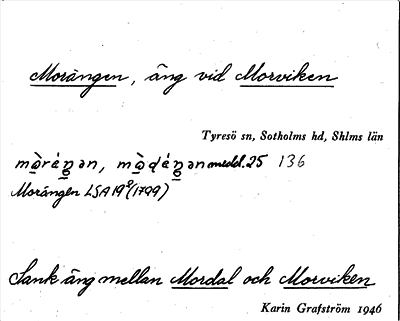 Morängen, äng vid Morviken
Tyresö sn, Sotholms hd, Shlms län
medd. 25 136
Morängen LSA 19 (1799)
Sank äng mellan Mordal och Morviken
Karin Grafström 1946